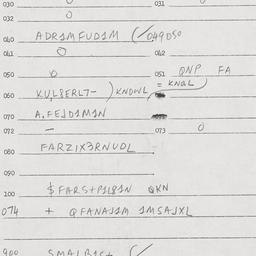 030 0 031 0
032 0
040 ADR1MFUD1M (✓ 049050
041 0 042
050 0 051 QNP FA
= KNQL
060 KU,L8ERL7- ) KNDWL
070 A,FEJD1M1N
072 - 073 0
080 FARZIX3RNUDL
090
100 $FARS+P1L81N QKN
074 + QFANAJ1M 1MSAJXL
900 SMALB1S+ (✓